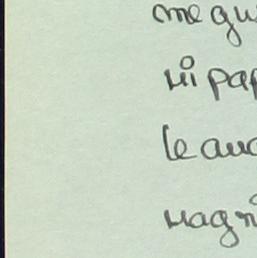 me gu
mi pap
le aud
magni